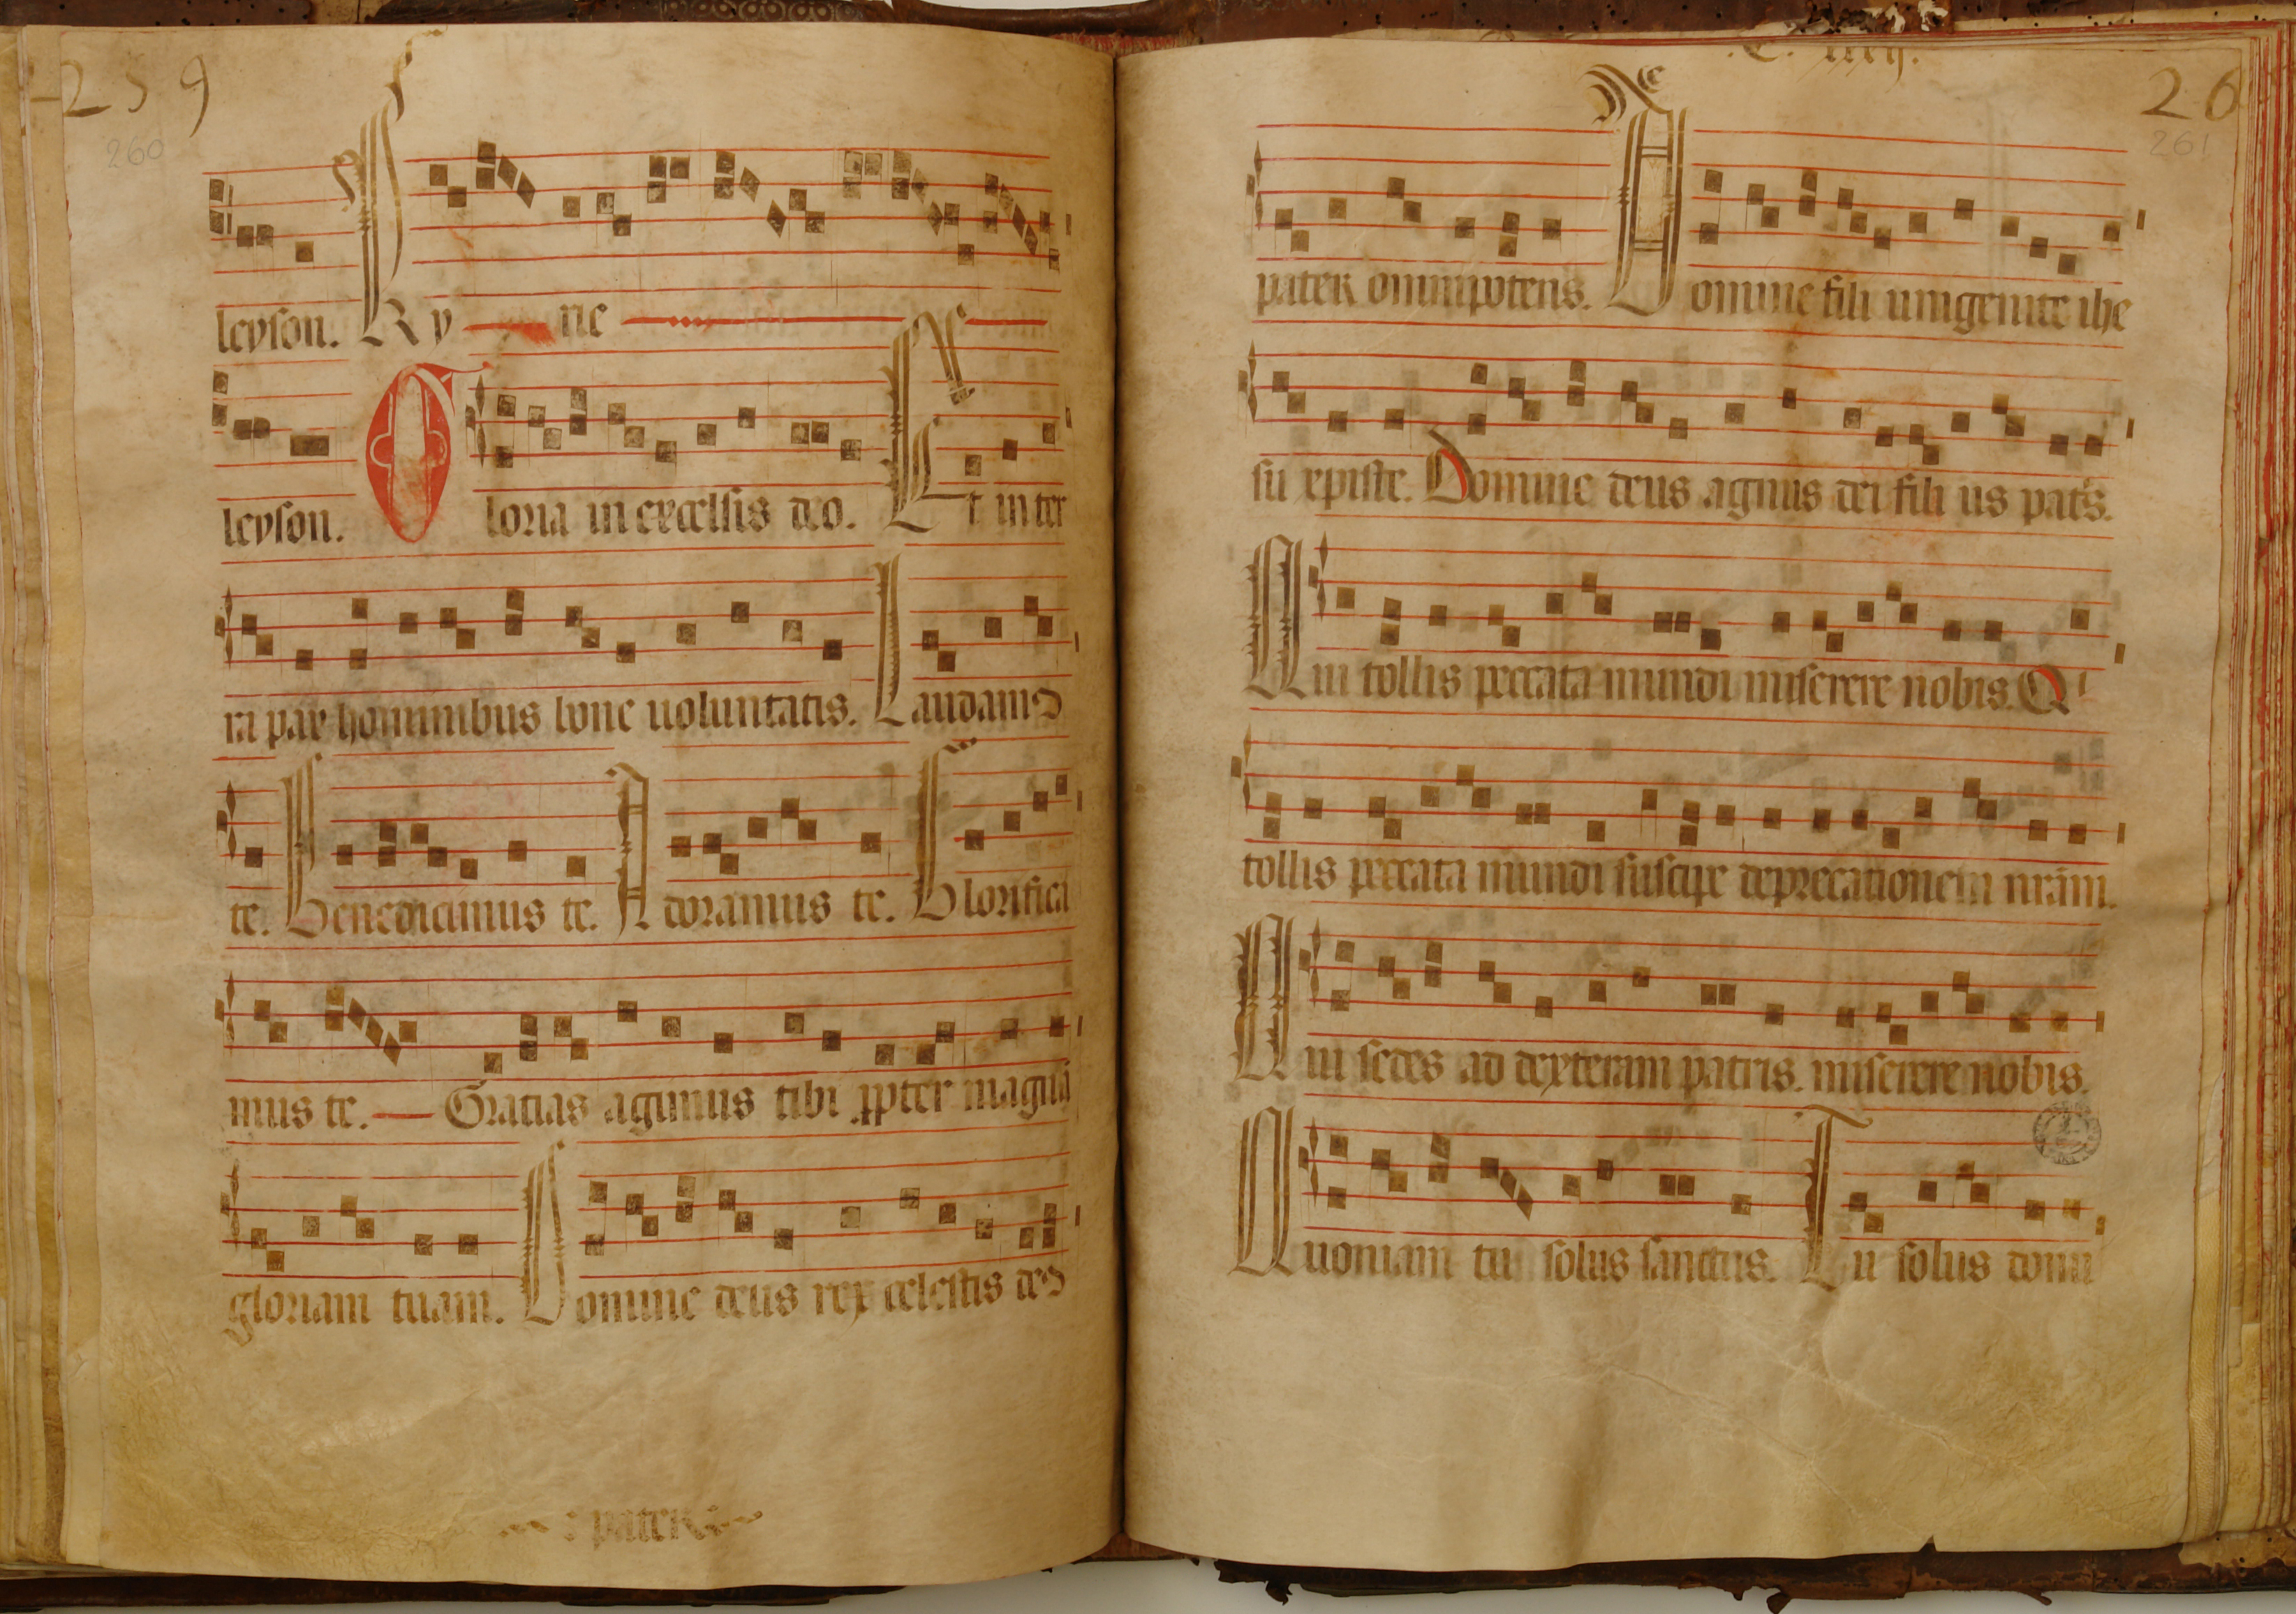 259
260
leyson. Kyrie
leyson. Gloria in excelsis deo. Et in ter
ra pax hominibus bone uoluntatis. Laudamꝰ
te. Benedicimus te. Adoramus te. Glorifica
mus te. Gratias agimus tibi ꝓpter magnã
gloriam tuam. Domine deus rex celestis deꝰ
: pater
C. iiij.
26
261
pater omnipotens. Domine fili unigenite ihe
su xpiste. Domine deus agnus dei filius pat's.
Qui tollis peccata mundi miserere nobis. Qi
tollis peccata mundi suscipe deprecationem nrãm.
Qui sedes ad dexteram patris. miserere nobis.
Quoniam tu solus sanctus. Tu solus domi